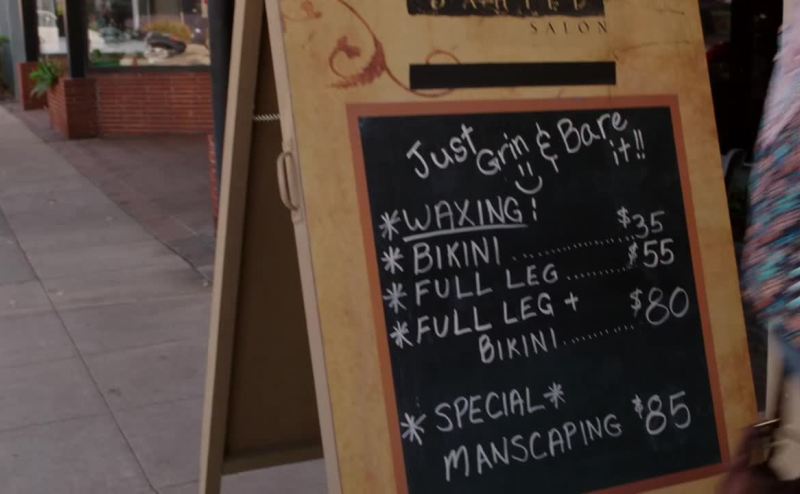 SALON
Just Grin & Bare it!!
*WAXING:
*BIKINI .......... $35
*FULL LEG ....... $55
*FULL LEG + $80
BIKINI ........
* SPECIAL *
MANSCAPING $85